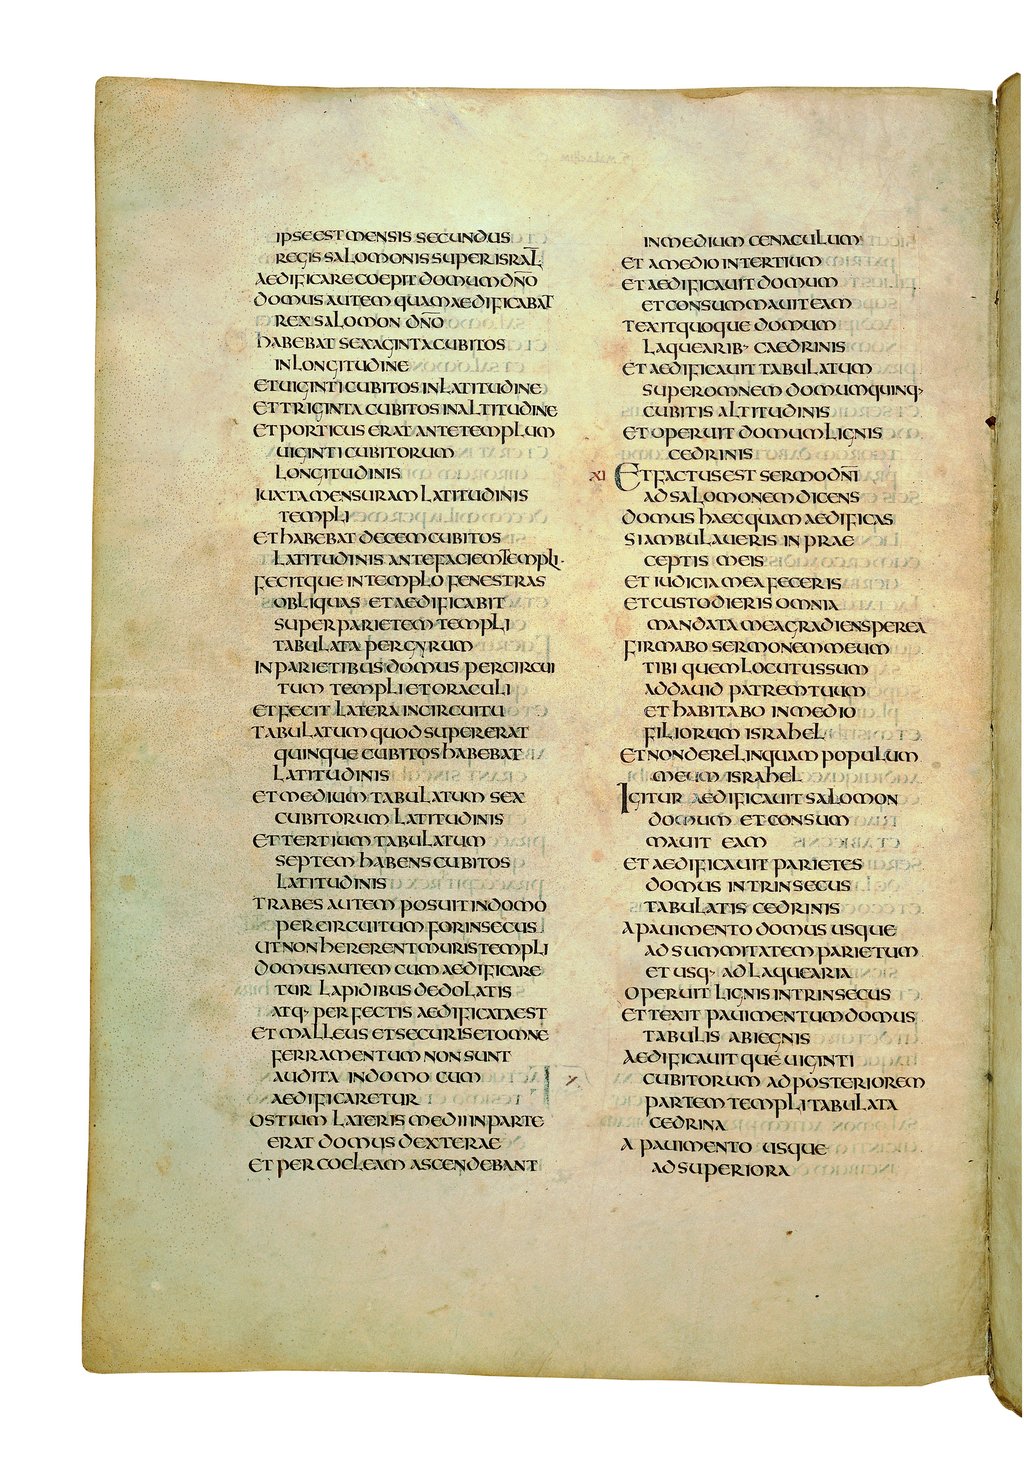 ipse est mensis secundus
regis salomonis super isral̅
aedificare coepit domum dn̅o
domus autem quam aedificabat
rex salomon dn̅o
habebat sexaginta cubitos
in longitudine
et uiginti cubitos in latitudine
et triginta cubitos in altitudine
et porticus erat ante templum
uiginti cubitorum
longitudinis
iuxta mensuram latitudinis
templi
et habebat decem cubitos
latitudinis ante faciem templi·
fecitque in templo fenestras
obliquas et aedificabit
super parietem templi
tabulata per gyrum
in parietibus domus per circui
tum templi et oraculi
et fecit latera in circuitu
tabulatum quod supererat
quinque cubitos habebat
latitudinis
et medium tabulatum sex
cubitorum latitudinis
et tertium tabulatum
septem habens cubitos
latitudinis
trabes autem posuit in domo
per circuitum forinsecus
ut non hererent muris templi
domus autem cum aedificare
tur lapidibus dedolatis
atq· perfectis aedificata est
et malleus et securis et omne
ferramentum non sunt
audita in domo cum
aedificaretur
ostium lateris medii in parte
erat domus dexterae
et per cocleam ascendebant
in medium cenaculum
et a medio in tertium
et aedificauit domum
et consummauit eam
texit quoque domum
laquearib· caedrinis
et aedificauit tabulatum
super omnem domum quinq·
cubitis altitudinis
et operuit domum lignis
cedrinis
xi Et factus est sermo dn̅i
ad salomonem dicens
domus haec quam aedificas
si ambulaueris in prae
ceptis meis
et iudicia mea feceris
et custodieris omnia
mandata mea gradiens per ea
firmabo sermonem meum
tibi quem locutus sum
ad dauid patrem tuum
et habitabo in medio
filiorum israhel
et non derelinquam populum
meum israhel
Igitur aedificauit salomon
domum et consum
mauit eam
et aedificauit parietes
domus intrinsecus
tabulatis cedrinis
a pauimento domus usque
ad summitatem parietum
et usq· ad laquearia
operuit lignis intrinsecus
et texit pauimentum domus
tabulis abiegnis
aedificauitque uiginti
cubitorum ad posteriorem
partem templi tabulata
cedrina
a pauimento usque
ad superiora